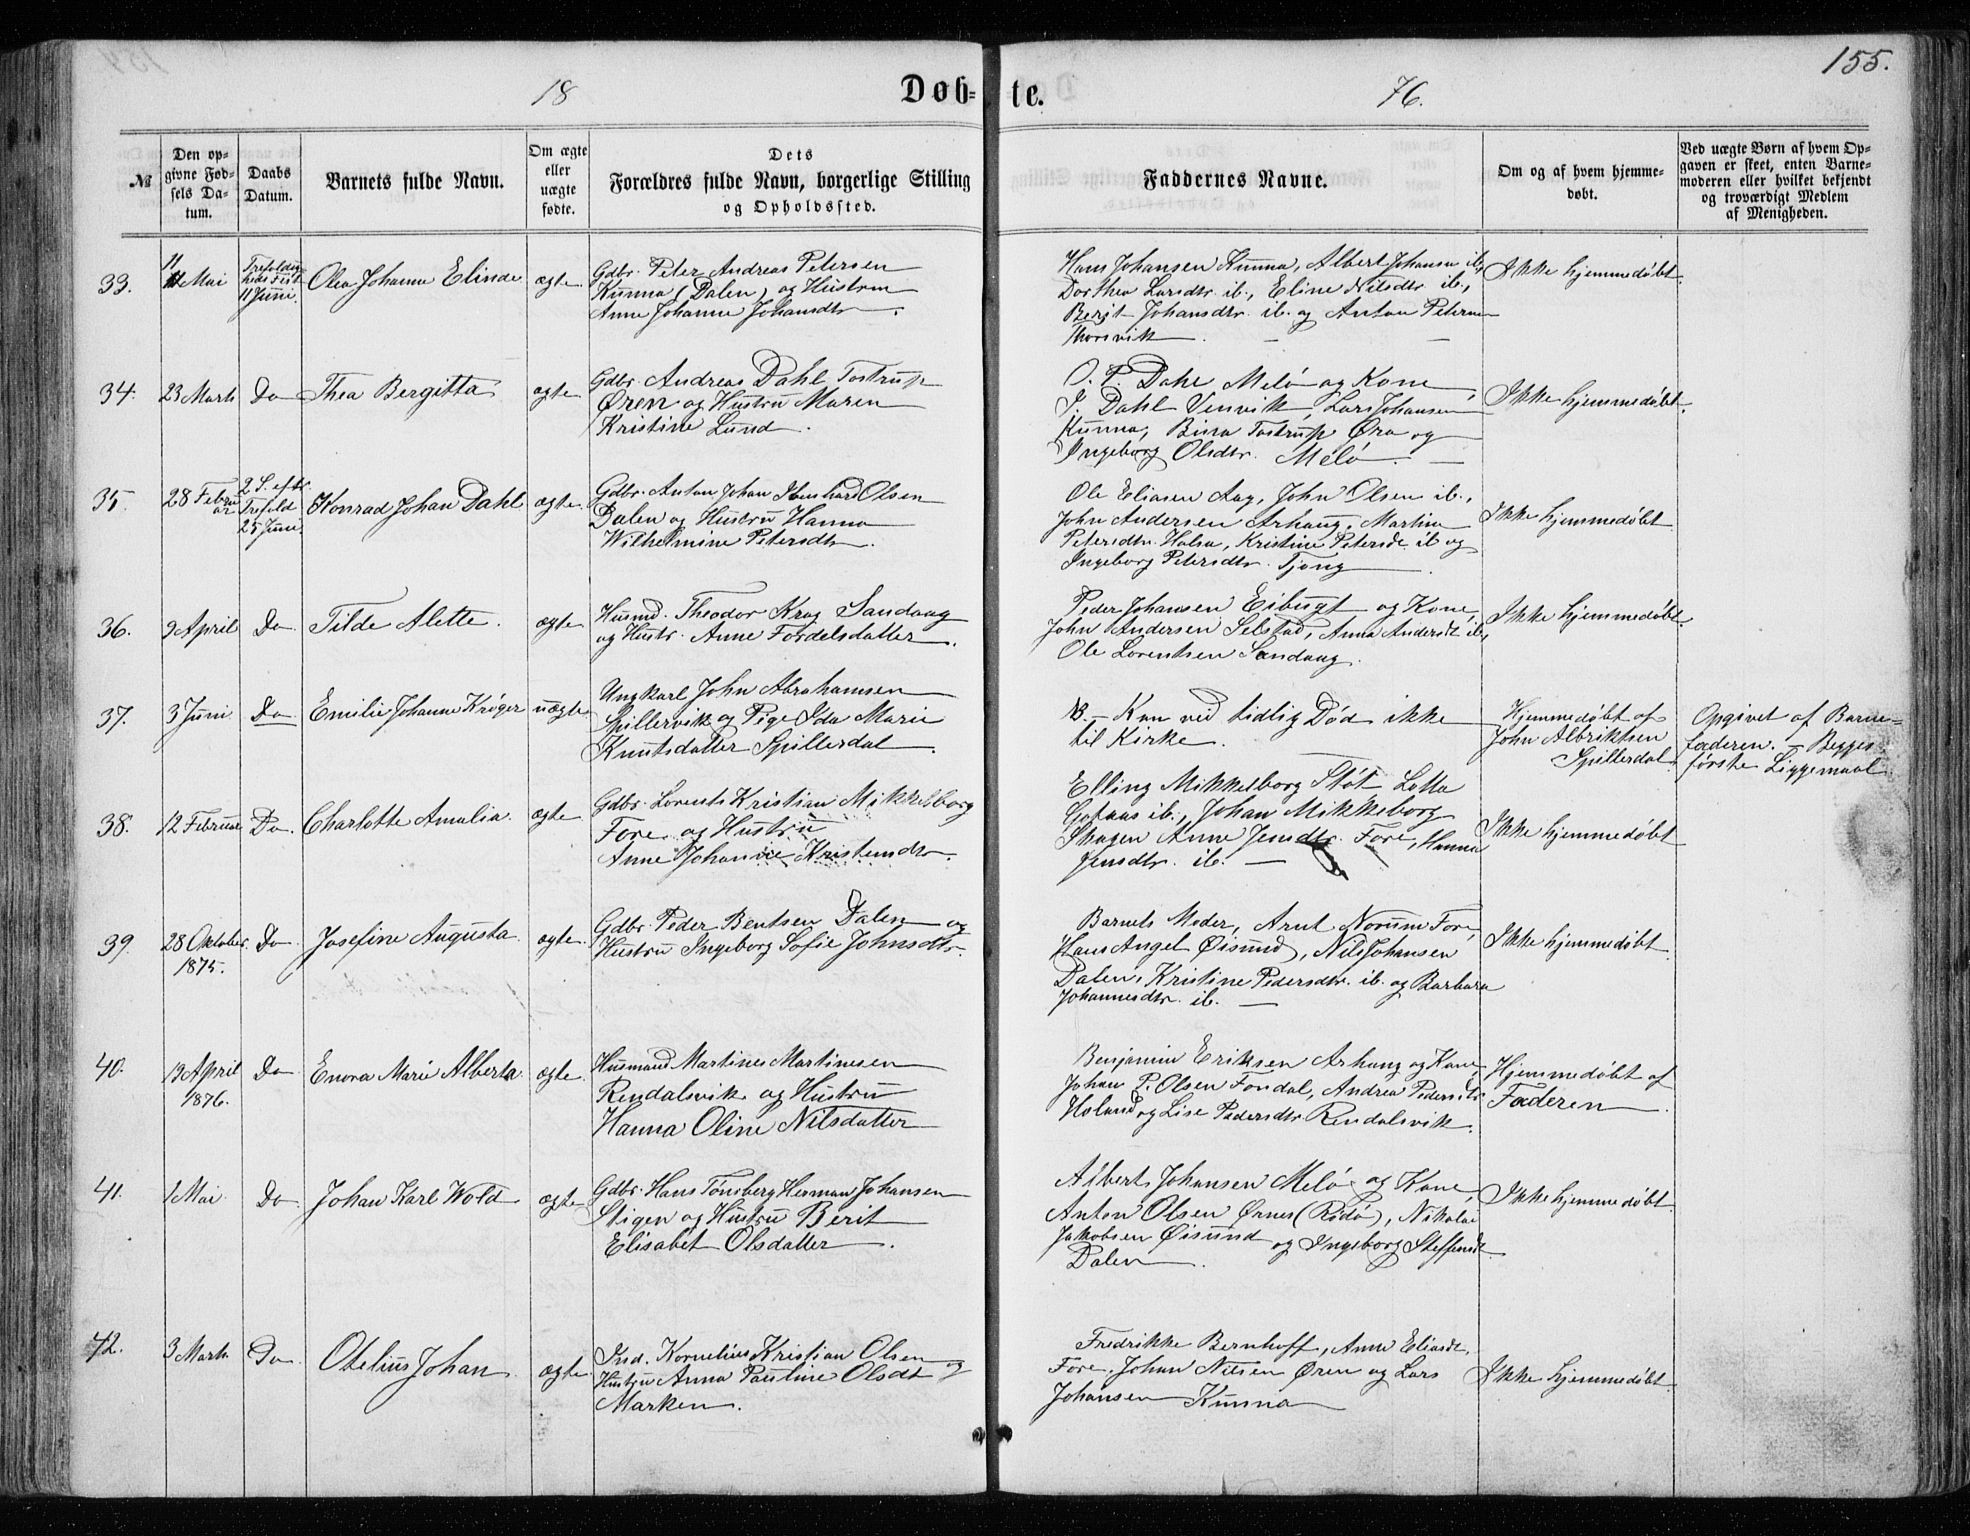 155.
18 Døb-te. 76.
№
Den op-
givne Fød-
sels Da-
tum.
Daabs
Datum.
Barnets fulde Navn.
Om ægte
eller
uægte
fødte.
Dets
Forældres fulde Navn, borgerlige Stilling
og Opholdssted.
Faddernes Navne.
Om og af hvem hjemme-
døbt.
Ved uægte Børn af hvem Op-
gaven er skeet, enten Barne-
moderen eller hvilket bekjendt
og troværdigt Medlem
af Menigheden.
33.
11 Mai
Trefoldig-
heds Fest
11 Juni.
Olea Johanne Elinde
ægte
Gdbr. Peter Andreas Petersen
Kunna (Dalen) og Hustru
Anne Johanne Johansdtr.
Hans Johansen Kunna, Albert Johansen ib.,
Dorthea Larsdtr. ib., Eline Nilsdtr. ib.,
Berit Johansdtr. ib. og Anton Petersen
Thorsvik.
Ikke hjemmedøbt.
34.
23 Marts
Do
Thea Bergitta
ægte
Gdbr. Andreas Dahl Tostrup
Øren og Hustru Maren
Kristine Lund.
O. P. Dahl Melö og Kone,
J. Dahl Venvik, Lars Johansen
Kunna, Tostrup Øra og
Ingeborg Olsdtr. Melö.
Ikke hjemmedøbt.
35.
28 Febru
ar
2 S. eftr.
Trefold
25 Juni.
Konrad Johan Dahl
ægte
Gdbr. Anton Johan Olsen
Dalen og Hustru Hanna
Wilhelmine Petersdtr.
Ole Eliasen Aag, John Olsen ib.,
John Andersen Arhaug, Martine
Petersdtr. Halsa, Kristine Petersd. ib og
Ingeborg Petersdtr. Tjong.
Ikke hjemmedøbt.
36.
9 April
Do
Tilde Alette.
ægte
Husmd. Theodor Krog Sandaag
og Hustr. Anne Fordelsdatter.
Peder Johansen Eibugt og Kone,
John Andersen Selstad, Anna Andersdt ib,
Ole Lorentsen Sandaag.
Ikke hjemmedøbt.
37.
3 Juni
Do
Emilie Johanne Kröger
uægte
Ungkarl John Abrahamsen
Spillervik og Pige Ida Marie
Knutsdatter Spillerdal.
NB. – Kun ved tidlig Død ikke
til Kirke.
Hjemmedøbt af
John Albriktsen
Spillerdal.
Opgivet af Barne-
faderen. – Begges
første Liggemaal.
38.
12 Februar
Do.
Charlotte Amalia.
ægte
Gdbr. Lorents Kristian Mikkelborg
Fore og Hustru
Anne Johanne Kristensdtr.
Elling Mikkelborg Støt, Lotta
ib., Johan Mikkelborg
Skagen Anne Jensdtr. Fore, Hanna
Jensdtr. ib.
Ikke hjemmedøbt
39.
28 Oktober
1875.
Do
Josefine Augusta
ægte.
Gdbr. Peder Bentsen Dalen og
Hustru Ingeborg Sofie Johnsdtr.
Barnets Moder, Arnt Norum Fore,
Hans Angel Øisund, Nils Johansen
Dalen, Kristine Pedersdtr. ib. og Barbara
Johannesdtr. ib.
Ikke hjemmedøbt
40.
13 April
1876.
Do
Enora Marie Alberta
ægte
Husmand Martines Martinesen
Rendalsvik og Hustru
Hanna Oline Nilsdatter
Benjamin Eriksen Arhaug og Kone,
Johan P. Olsen Fondal, Andrea Pedersdtr
Holand og Lise Pedersdtr. Rendalsvik.
Hjemmedøbt af
Faderen.
41.
1 Mai
Do
Johan Karl Wold
ægte
Gdbr. Hans Tönsberg Herman Johansen
Stigen og Hustru Berit
Elisabet Olsdatter.
Albert Johansen Melö og Kone,
Anton Olsen Ørnes (Rödö), Nikolai
Jakobsen Øisund og Ingeborg Steffensdt
Dalen.
Ikke hjemmedøbt
42.
3 Marts.
Do
Otelius Johan
ægte
Ind. Kornelius Kristian Olsen og
Hustru Anna Pauline Olsdt
Marken.
Fredrikke Bernhoff, Anne Eliasdt.
Fore, Johan Nilsen Øren og Lars
Johansen Kunna
Ikke hjemmedøbt